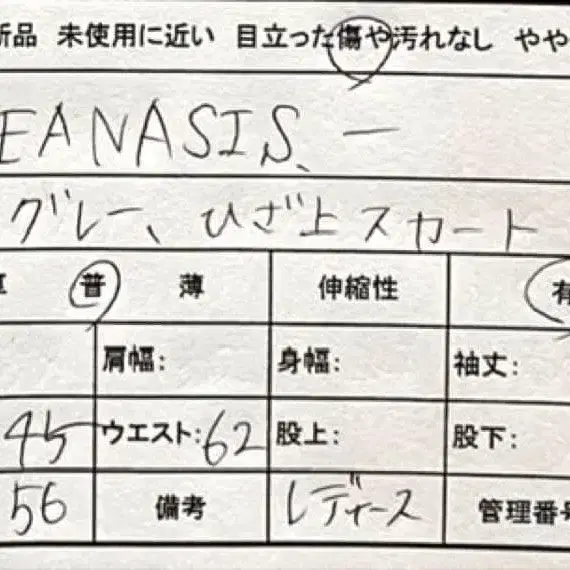 新品 未使用に近い 目立った傷や汚れなし やや
EANASIS、ー
グレー、ひざ上スカート
普 薄 伸縮性 有
肩幅: 身幅: 袖丈:
45 ウエスト:62 股上: 股下:
56 備考 レディース 管理番号